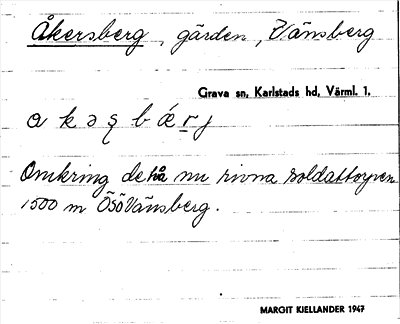 Åkersberg, gärden, Vänsberg
Grava sn, Karlstads hd, Värml. l.
a k ə ȿ b ǽ r j
Omkring det nu rivna soldattorpen
1500 m ÖSÖ Vänsberg.
MARGIT KIELLANDER 1947